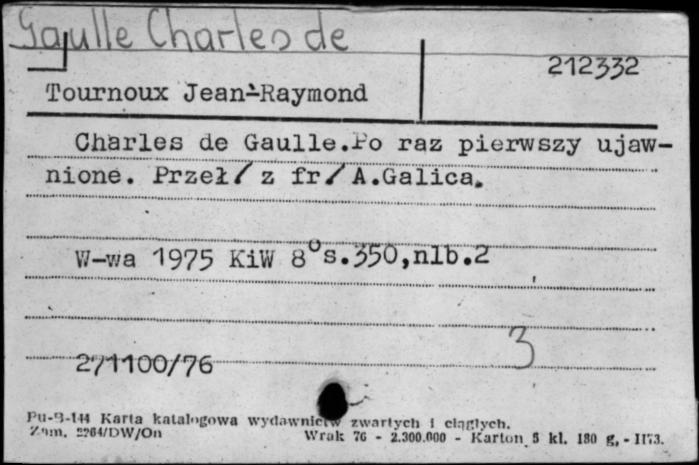 Gaulle Charles de
212332
Tournoux Jean-Raymond
Charles de Gaulle.Po raz pierwszy ujaw-
nione. Przeł/ z fr/ A.Galica.
W-wa 1975 KiW 8° s.350,nlb.2
3
271100/76
Pu-B-144 Karta katalogowa wydawnictw zwartych i ciągłych.
Zam. 2264/DW/On Wrak 76 - 2.300.000 - Karton 5 kl. 180 g, - II73.